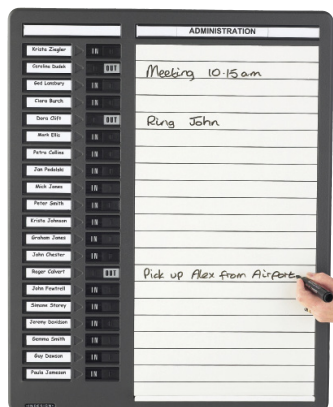 ADMINISTRATION
Krista Ziegler IN
Caroline Dudek OUT Meeting 10.15am
Ged Lambury IN
Ciara Burch IN
Dora Clift OUT Ring John
Mark Ellis IN
Petra Collins IN
Jan Podolski IN
Mick Jones IN
Peter Smith IN
Krista Johnson IN
Graham Jones IN
John Chester IN
Roger Calvert OUT Pick up Alex from Airport
John Fewtrell IN
Simone Storey IN
Jeremy Davidson IN
Gemma Smith IN
Guy Dawson IN
Paula Jameson IN